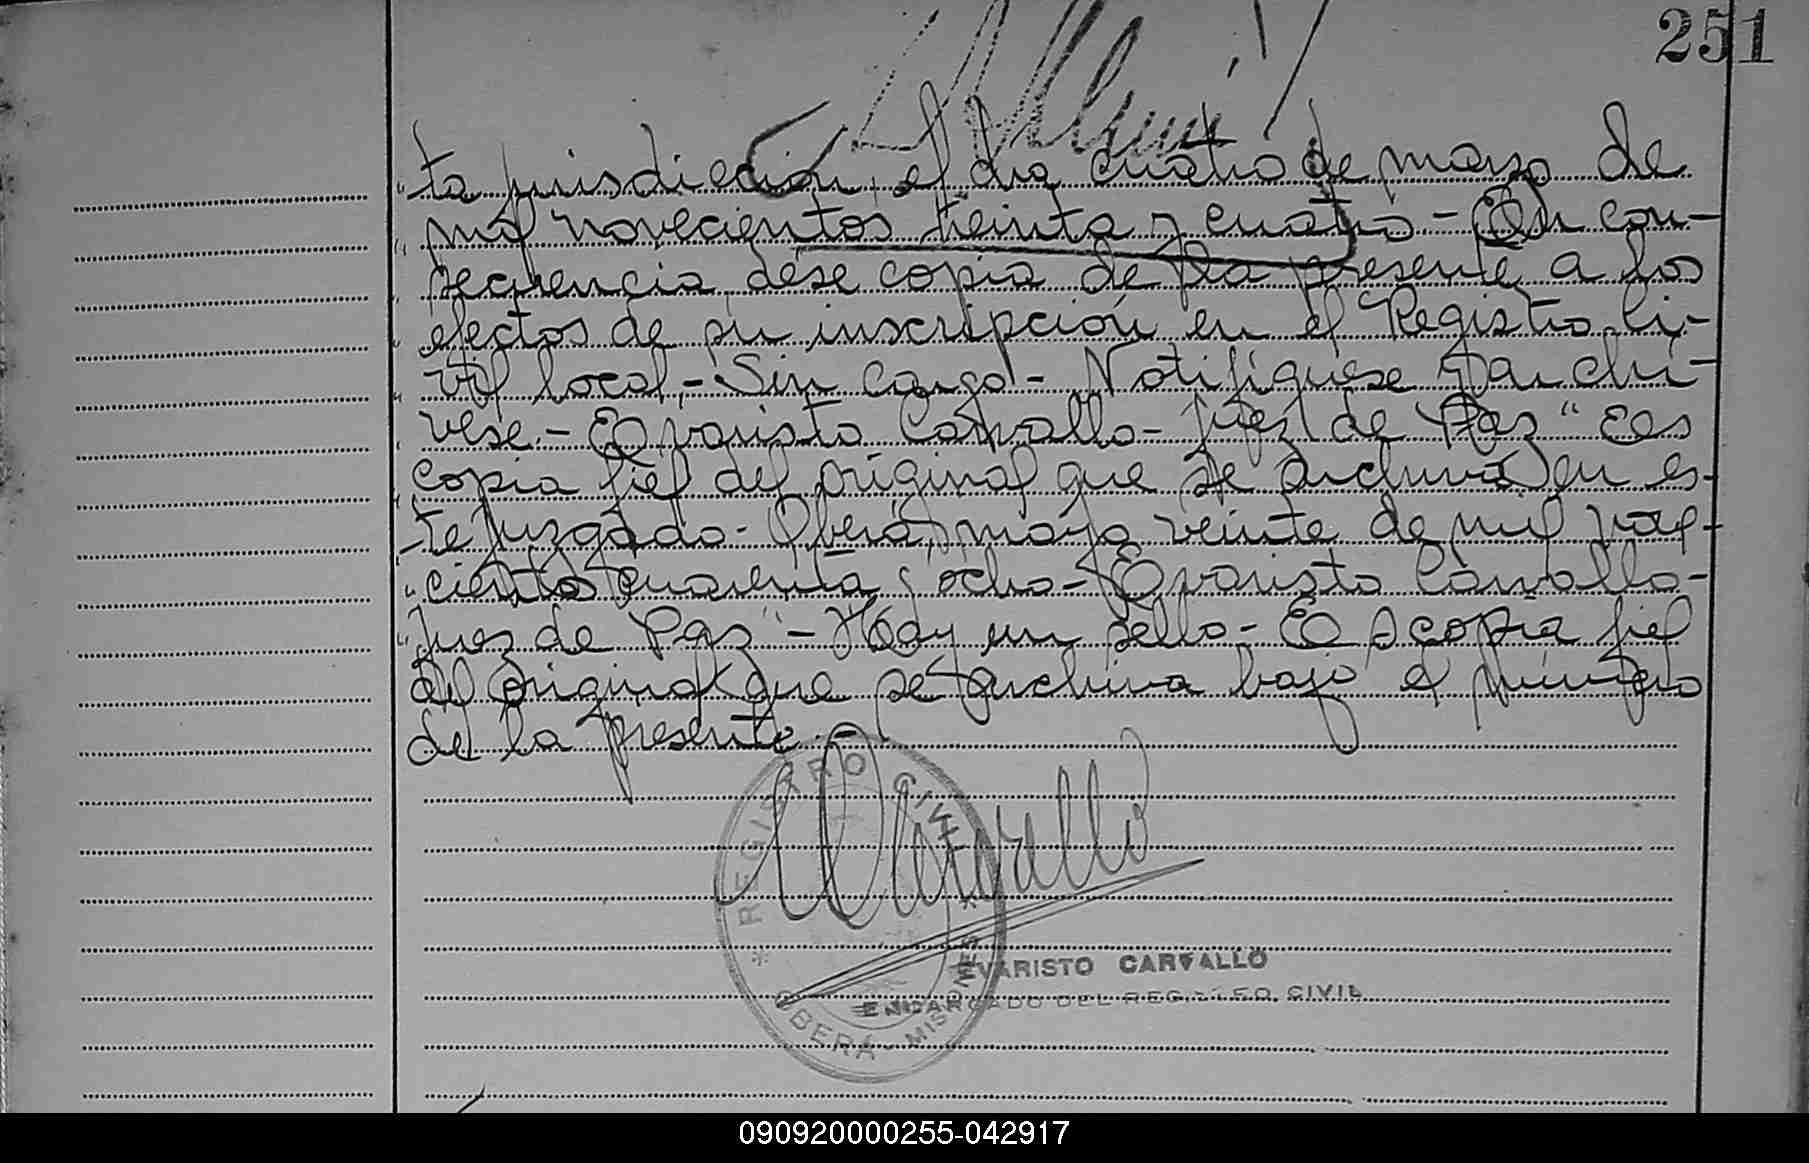 251
ta jurisdicción, el dia cuatro de marzo de
mil novecientos treinta y cuatro - En con-
secuencia, dése copia de la presente a los
efectos de su inscripción en el Registro Ci-
vil local, - Sin cargo - Notifíquese y archí-
vese. - Evaristo Carvallo - Juez de Paz" Es
copia fiel del original que se archiva en es-
te Juzgado - Oberá, mayo veinte de mil
cientos cuarenta y ocho - Evaristo Carvallo -
Juez de Paz" - Hay un sello - Es copia fiel
del original que se archiva bajo el número
de la presente. -
REGISTRO CIVIL
* OBERÁ - MISIONES *
EVARISTO CARVALLO
ENCARGADO DEL REGISTRO CIVIL
090920000255-042917